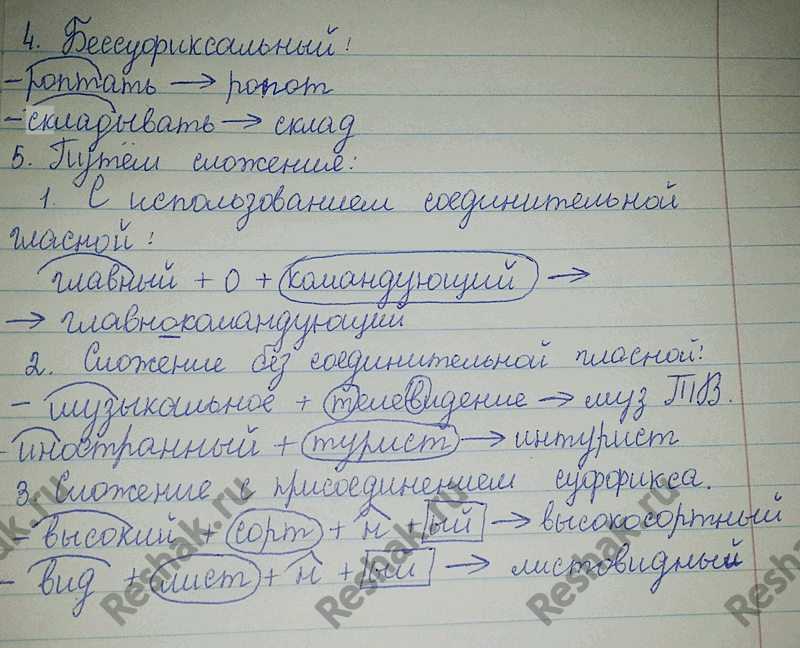 4. Бессуфиксальный!
– роптать → ропот
– складывать → склад
5. Путём сложение:
1. С использованием соединительной
гласной:
главный + о + командующий →
→ главнокомандующий
2. Сложение без соединительной гласной:
– музыкальное + телевидение → муз ТВ.
– иностранный + турист → интурист
3. Сложение с присоединением суффикса.
– высокий + сорт + н + ый → высокосортный
– вид + лист + н + ый → листовидный
Reshak.ru Reshak.ru Reshak.ru Reshak.ru